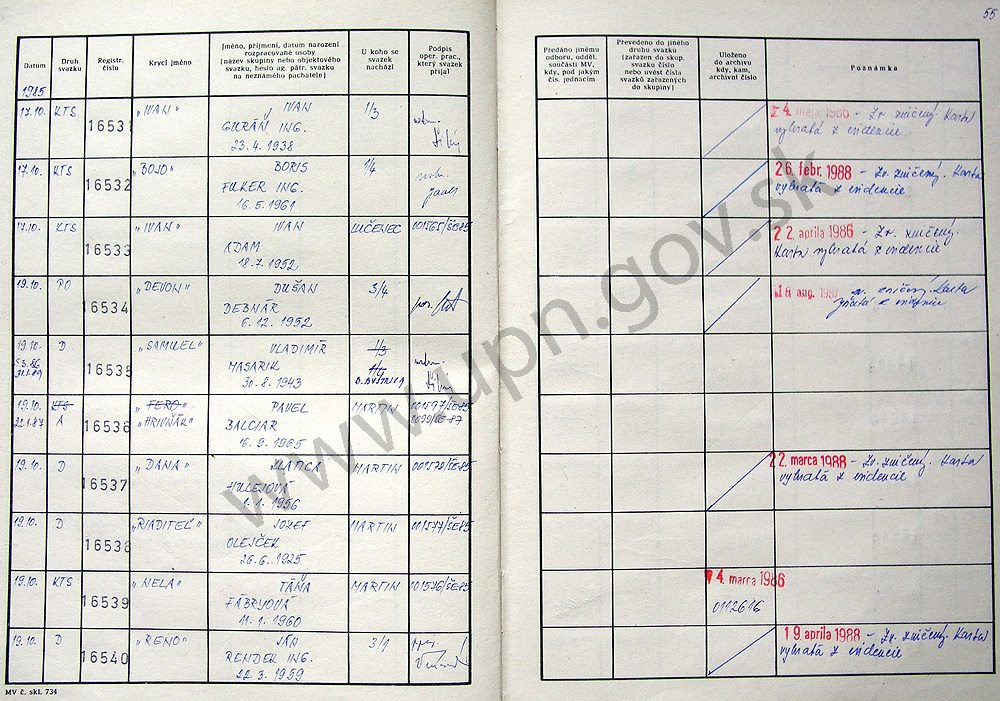 55
Datum
Druh svazku
Registr. číslo
Krycí jméno
Jméno, příjmení, datum narození rozpracované osoby (název skupiny nebo objektového svazku, heslo ag. pátr. svazku na neznámého pachatele)
U koho se svazek nachází
Podpis oper. prac., který svazek přijal
Předáno jinému odboru, odděl. součásti MV, kdy, pod jakým čís. jednacím
Převedeno do jiného druhu svazku (zařazen do skup. svazku číslo nebo uvést čísla svazků zařazených do skupiny)
Uloženo do archivu kdy, kam, archivní číslo
Poznámka
1985
17.10. KTS 16531 „IVAN" IVAN 1/3
GURÁŇ ING.
23.4.1938
4. 1986 - Zv. zničený. Karta
vybratá z evidencie
17.10. KTS 16532 „BOJO" BORIS 1/4
FULIER ING.
16.5.1961
26 febr. 1988 - Zv. zničený. Karta
vybratá z evidencie
17.10. KTS 16533 „IVAN" IVAN LUČENEC 001565/ŠE-85
ADAM
18.7.1952
22 apríla 1986 - Zv. zničený.
Karta vybratá z evidencie
19.10. PO 16534 „DEVON" DUŠAN 3/4
DEBNÁR
6.12.1952
18 aug. 1987 zv. zničený. Karta
z evidencie
19.10. D 16535 „SAMUEL" VLADIMÍR 1/3
MASARIK
30.8.1943
B. BYSTRICA
19.10. KTS 16536 „FERO" PAVEL MARTIN 001597/ŠE-85
22.1.87 A „HRIVŇÁK" BALCIAR 0099/ŠE-87
16.9.1965
19.10. D 16537 „DANA" MARTIN 001578/ŠE85
HULEJOVÁ
1.1.1956
22 marca 1988 - Zv. zničený. Karta
vybratá z evidencie
19.10. D 16538 „RIADITEĽ" JOZEF MARTIN 001577/ŠE85
OLEJČEK
26.6.1925
19.10. KTS 16539 „NELA" TÁŇA MARTIN 001576/ŠE85
FÁBRYOVÁ
11.1.1960
4 marca 1986
0112616
19.10. D 16540 „RENO" JÁN 3/1
RENDEK ING.
22.3.1959
19 apríla 1988 - Zv. zničený. Karta
vybratá z evidencie
MV č. skl. 734
www.upn.gov.sk